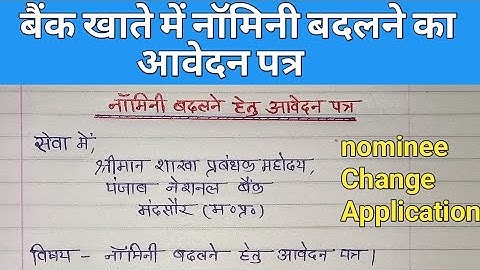 बैंक खाते में नॉमिनी बदलने का
आवेदन पत्र
नॉमिनी बदलने हेतु आवेदन पत्र
सेवा में,
श्रीमान शाखा प्रबंधक महोदय,
पंजाब नेशनल बैंक
मंदसौर (म०प्र०)
विषय - नॉमिनी बदलने हेतु आवेदन पत्र।
nominee
Change
Application